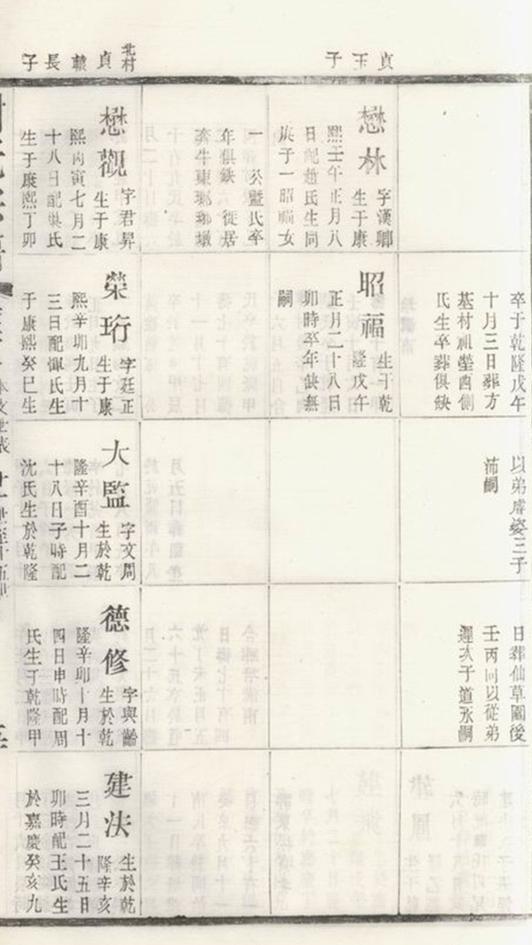 貞玉子
北村
貞轅長子
卒于乾隆戊午
十月三日葬方
基村祖塋酉側
氏生卒葬俱缺
以弟膚姿三子
沛嗣
日葬仙草園後
壬丙向以從弟
遲次子道永嗣
懋林
字漢卿
生于康
熙壬午正月八
日配趙氏生同
庚子一昭福女
一
公暨氏卒
年俱缺
徙居
牽牛東瑯瑯墩
昭福
生于乾
隆戊午
正月二十八日
卯時卒年缺無
嗣
懋觀
字君昇
生于康
熙丙寅七月二
十八日配吳氏
生于康熙丁卯
榮珩
字廷正
生于康
熙辛卯九月十
三日配惲氏生
于康熙癸巳生
大監
字文周
生於乾
隆辛酉十月二
十八日子時配
沈氏生於乾隆
德修
字與齡
生於乾
隆辛卯十月十
四日申時配周
氏生于乾隆甲
建法
生於乾
隆辛亥
三月二十五日
卯時配王氏生
於嘉慶癸亥九